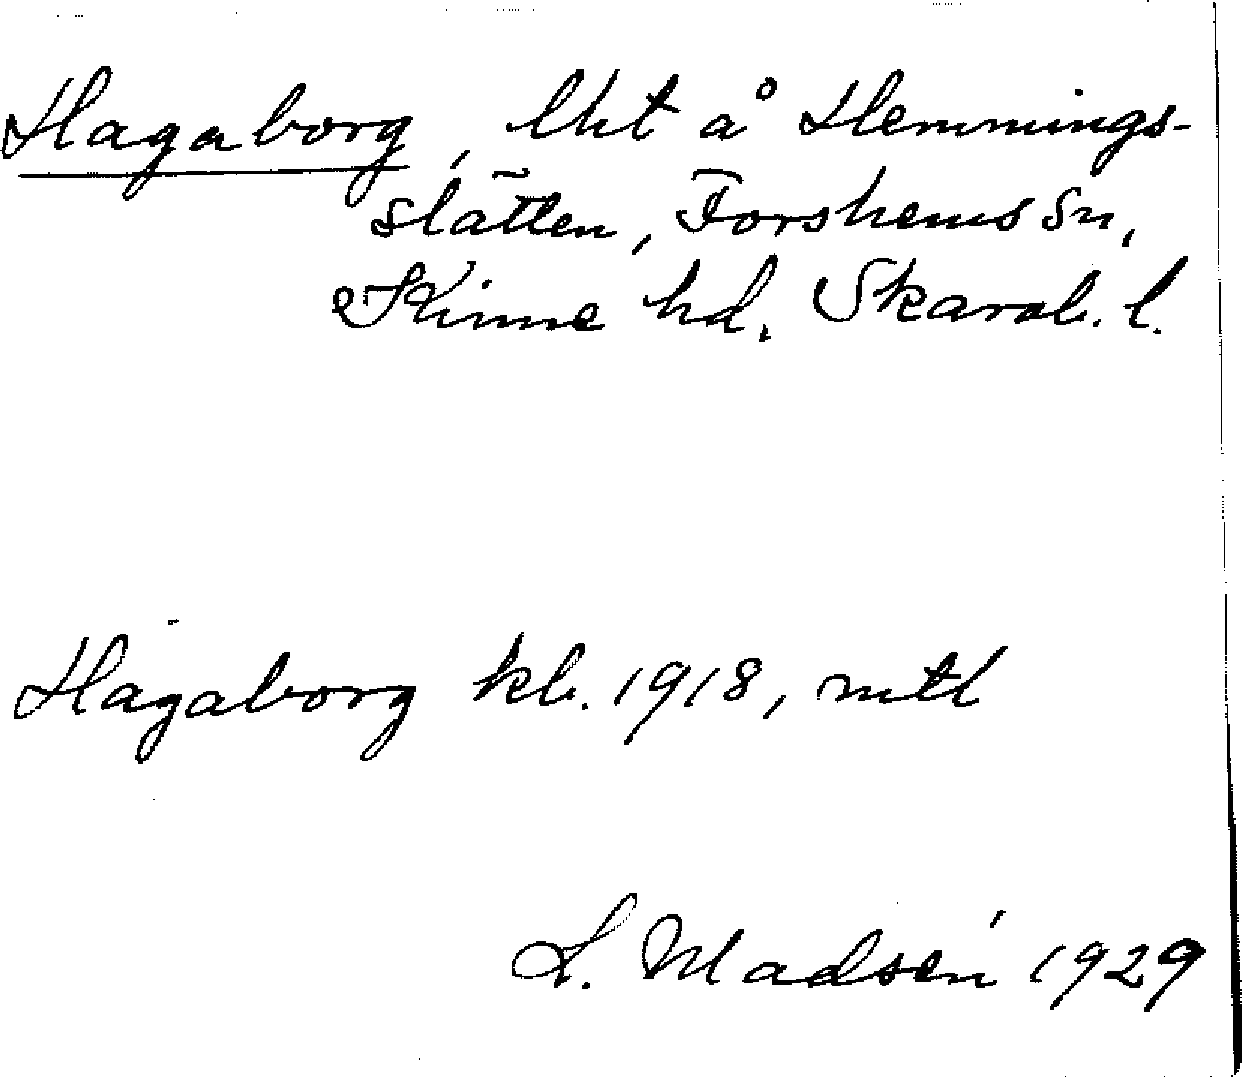 Hagaborg, lht å Hemmings-
slätten, Forshems sn,
Kinne hd, Skarab. l.
Hagaborg kb. 1918, mtl
L. Madsén 1929